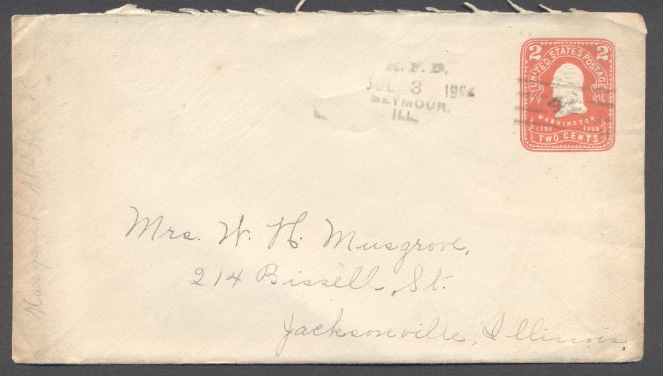 R. F. D.
JUL 3 1904
SEYMOUR,
ILL
2 2
UNITED STATES POSTAGE
WASHINGTON
1732 1799
TWO CENTS
Mrs. W. H. Musgrove,
214 Bissell St.
Jacksonville, Illinois.